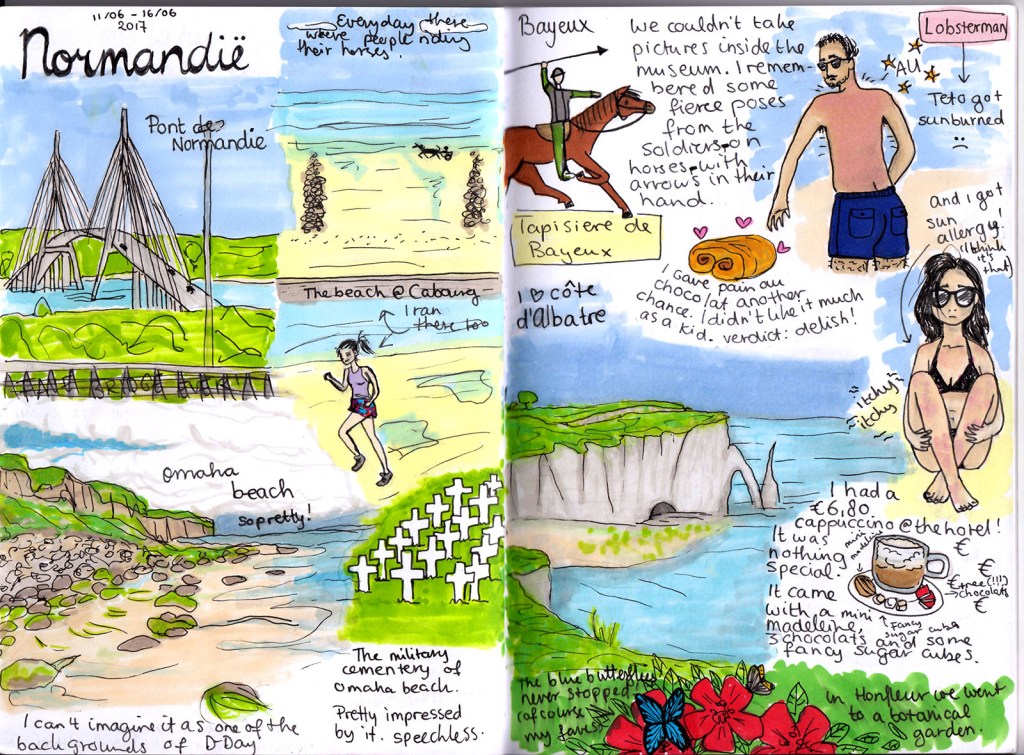 11/06 – 16/06
2017
Normandië
Everyday there
where people riding
their horses!
Pont de
Normandie
The beach @ Cabourg
I ran
there too
omaha
beach
so pretty!
I can't imagine it as one of the
backgrounds of D-Day
The military
cementery of
omaha beach.
Pretty impressed
by it. speechless.
Bayeux
We couldn't take
pictures inside the
museum. I remem-
bered some
fierce poses
from the
soldiers on
horses with
arrows in their
hand.
Tapisiere de
Bayeux
Lobsterman
AU
Teto got
sunburned
:(
and i got
sun
allergy!
(I think
it's
that)
itchy
itchy
I gave pain au
chocolat another
chance. I didn't like it much
as a kid. verdict: delish!
I ♡ côte
d'Albatre
I had a
€6,80
cappuccino @ the hotel!
It was
nothing
special.
It came
with a mini
madeline,
3 chocolats and some
fancy sugar cubes.
mini
madeline
Fancy
sugar cubes
€
€ free (!!!)
→ chocolats
€
The blue butterflies
never stopped
(of course
my faves)
in Honfleur we went
to a botanical
garden.